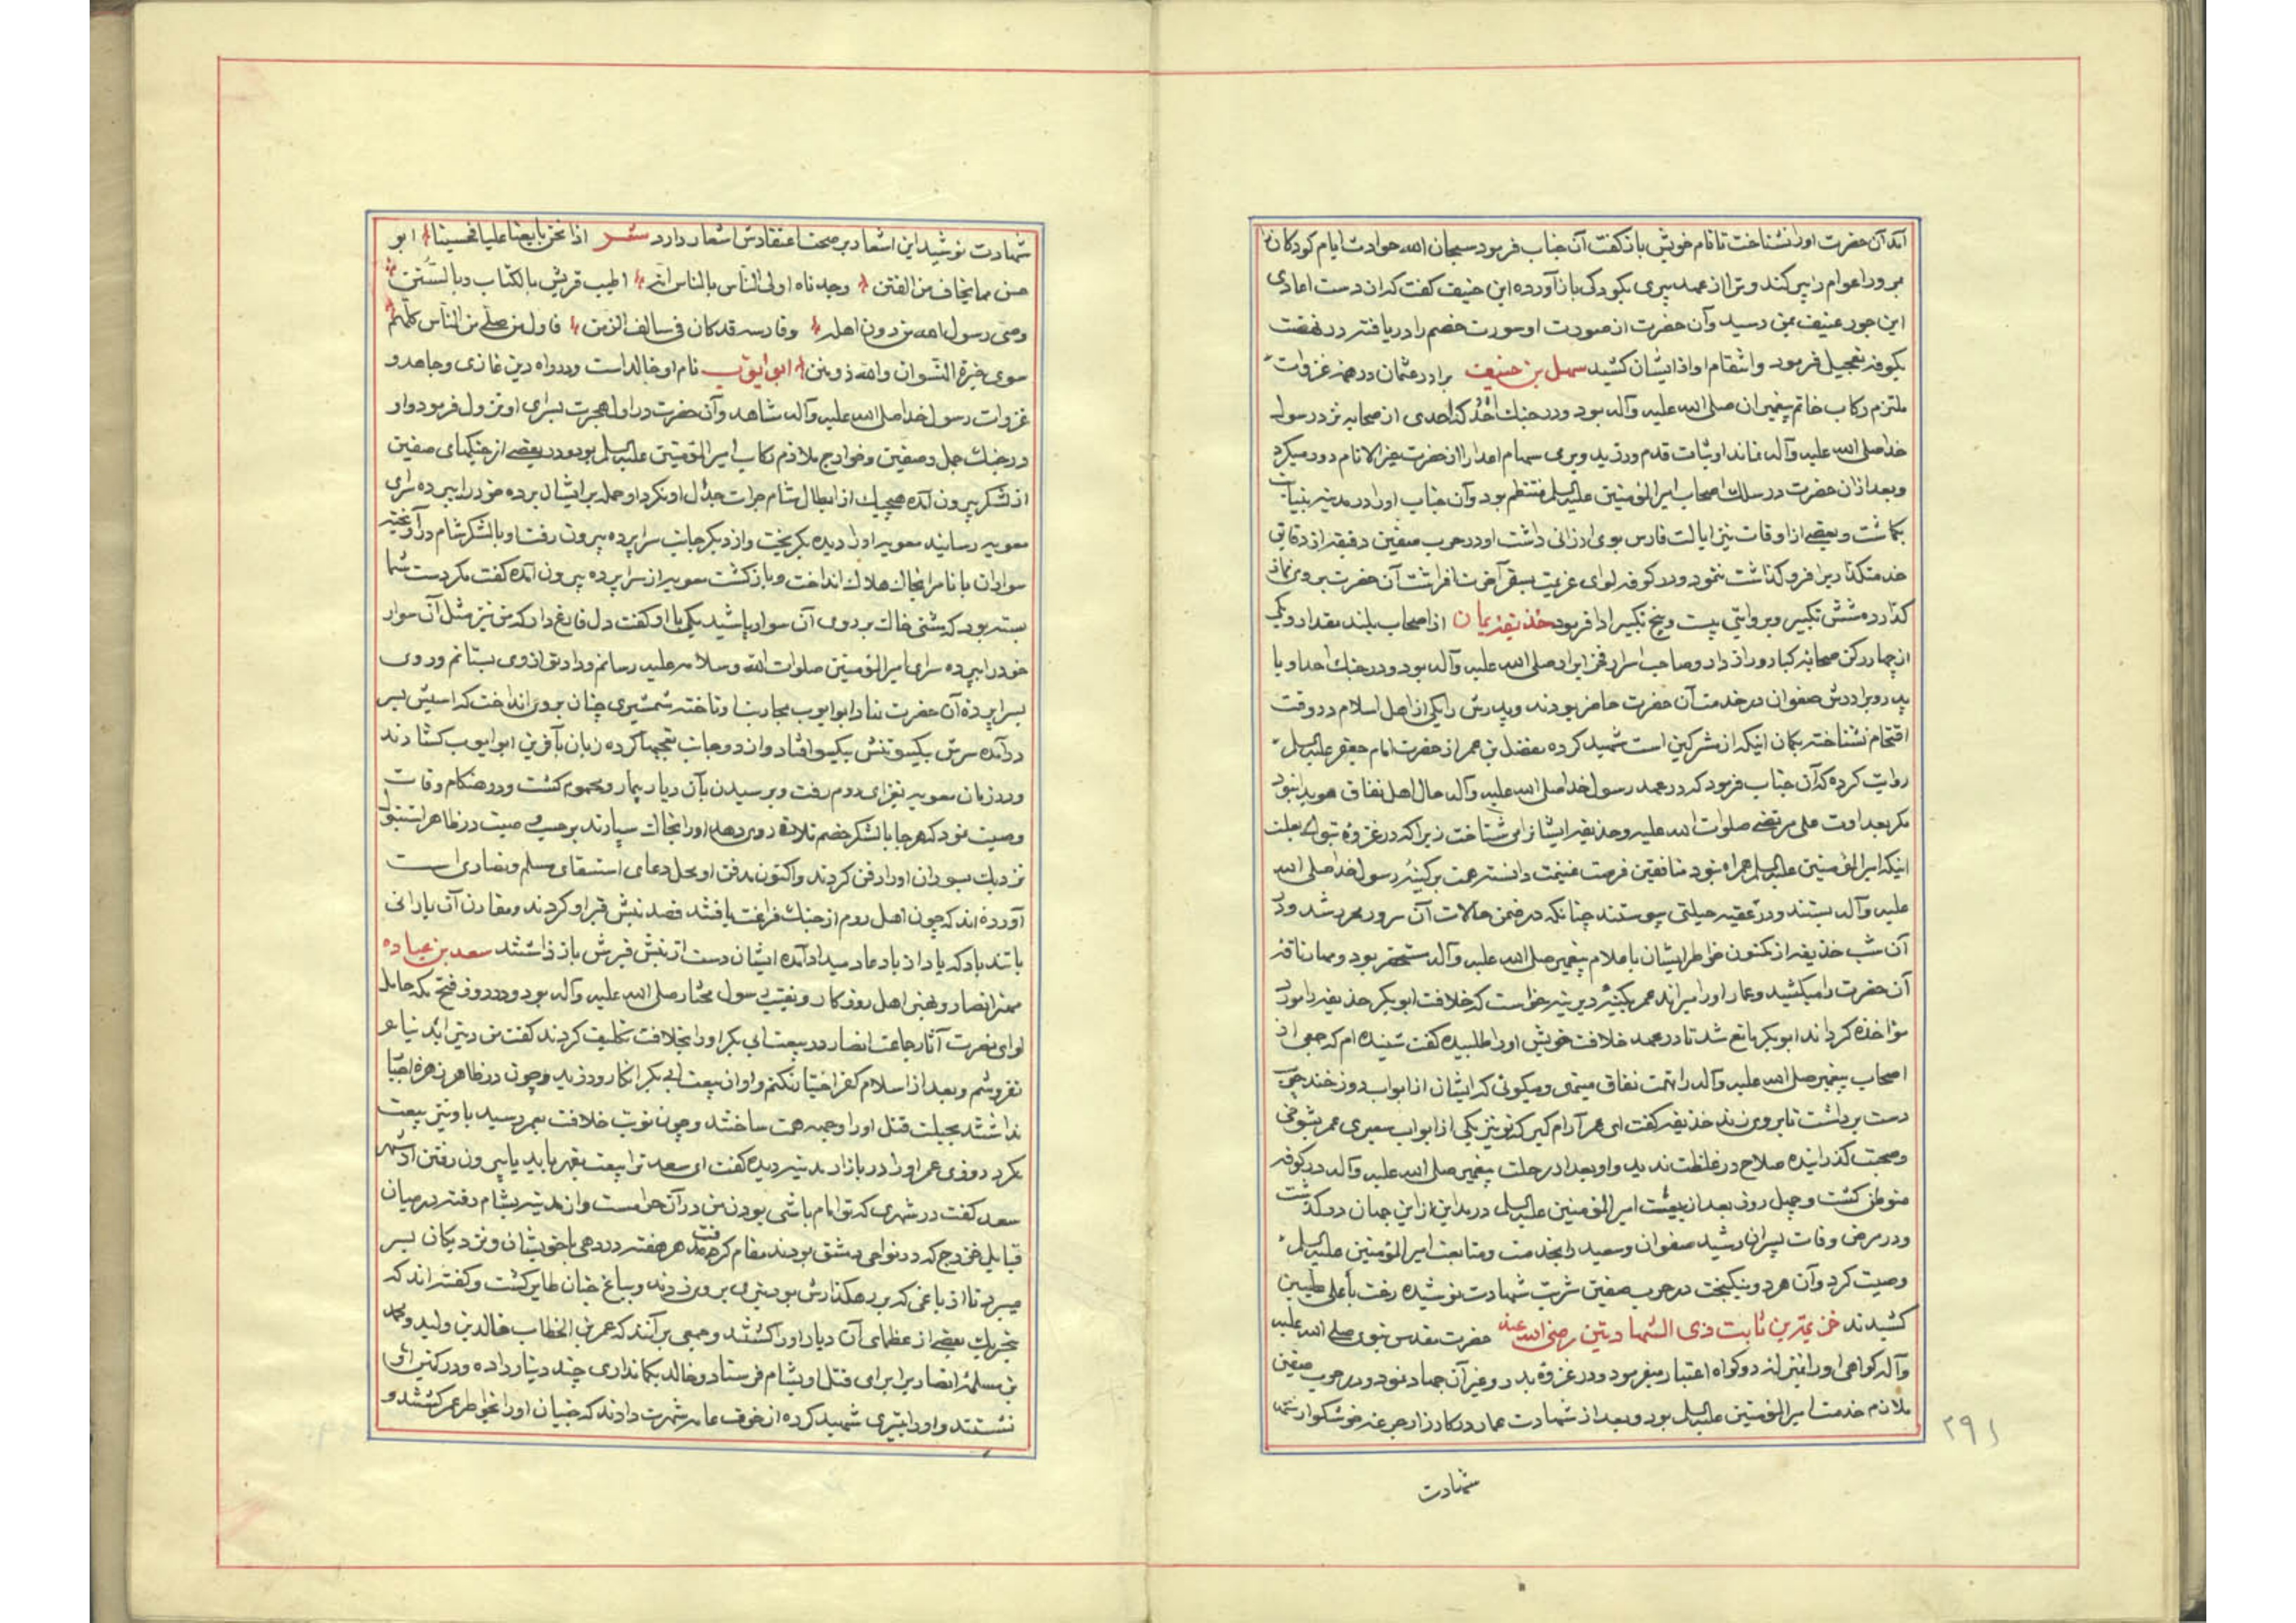 آمد آن حضرت اورا نشناخت تا نام خویش بازگفت آن جناب فرمود سبحان الله حوادث ایام کودکان را
بمرور اعوام پیر کند و ترا از عهد پیری بکودکی باز آورده ابن حنیف گفت که از دست اعادی
این جور عنیف بمن رسید و آن حضرت از صورت او سورت خصم را دریافته در نهضت
بکوفه تعجیل فرمود و انتقام او از ایشان کشید سهل بن حنیف برادر عثمان در همه غزوات
ملتزم رکاب خاتم پیغمبران صلی الله علیه وآله بود ودر جنک احد که احدی از صحابه نزد رسول
خدا صلی الله علیه وآله نماند او ثبات قدم ورزید وبرمی سهام اعدا را از حضرت خیر الانام دور میکرد
وبعد ازان حضرت در سلک اصحاب امیرالمؤمنین علیه السلم منتظم بود وآن جناب اورا در مدینه بنیابت
بکماشت و بعضی از اوقات نیز ایالت فارس بوی ارزانی داشت او در حرب صفین دقیقه از دقایق
خدمتکذاری فرو گذاشت ننمود ودر کوفه لوای عزیمت بسفر آخرت افراشت آن حضرت بروی نماز
گذارده شش تکبیر وبروایتی بیست و پنج تکبیر ادا فرمود حذیفه یمان از اصحاب بلند مقدار ویکی
از چهار رکن صحابه کبار و رازدار وصاحب اسرار فخر ابرار صلی الله علیه وآله بود ودر جنک احد او با
پدر وبرادرش صفوان در خدمت آن حضرت حاضر بودند وپدرش را یکی از اهل اسلام در وقت
اقتحام نشناخته بکمان اینکه از مشرکین است شهید کرده مفضل بن عمر از حضرت امام جعفر علیه السلم
روایت کرده که آن جناب فرمود که در عهد رسول خدا صلی الله علیه وآله حال اهل نفاق هویدا نبود
مکر بعداوت علی مرتضی صلوات الله علیه وحذیفه ایشانرا می شناخت زیرا که در غزوه تبوک بعلت
اینکه امیرالمؤمنین علیه السلم همراه نبود منافقین فرصت غنیمت دانسته همت بر کینه رسول خدا صلی الله
علیه وآله بستند ودر عقبه حیلتی پیوستند چنانکه در ضمن حالات آن سرور محرر شد ودر
آن شب حذیفه از مکنون خواطر ایشان باعلام پیغمبر صلی الله علیه وآله مستحضر بود ومهار ناقه
آن حضرت را میکشید وعمار اورا میراند عمر بکینه دیرینه خواست که خلافت ابوبکر حذیفه را مورد
مؤاخذه کرداند ابوبکر مانع شد تا در عهد خلافت خویش اورا طلبیده گفت شنیده ام که جمعی از
اصحاب پیغمبر صلی الله علیه وآله را تهمت نفاق مینهی ومیکوئی که ایشان از ابواب دوزخند چوب
دست برداشت تا بروی زند حذیفه گفت ای عمر آرام کیر که تو نیز یکی از ابواب سعیری عمر بشوخی
وصحبت گذرانیده صلاح در غلظت ندید واو بعد از رحلت پیغمبر صلی الله علیه وآله در کوفه
متوطن کشت وچهل روز بعد از بیعت امیرالمؤمنین علیه السلم در مداین از این جهان در گذشت
ودر مرض وفات پسران رشید صفوان وسعید را بخدمت ومتابعت امیرالمؤمنین علیه السلم
وصیت کرد وآن هر دو نیکبخت در حرب صفین شربت شهادت نوشیده رخت بأعلی علیین
کشیدند خزیمة بن ثابت ذی الشهادتین رضی الله عنه حضرت مقدس نبوی صلی الله علیه
وآله کواهی اورا بمنزله دو کواه اعتبار میفرمود ودر غزوه بدر وغیر آن جهاد نمود ودر حرب صفین
ملازم خدمت امیرالمؤمنین علیه السلم بود وبعد از شهادت عمار در کارزار جرعه خوشکوار
شهادت
۲۹۱
شهادت نوشید این اشعار بر صحت اعتقادش اشعار دارد شعر اذا نحن بایعنا علیا فحسبنا ابو
حسن مما یخاف من الفتن وجدناه اولی الناس بالناس انه اطیب قریش بالکتاب وبالسنن
وصی رسول الله من دون اهله وفارسه قد کان فی سالف الزمن فاول من صلی من الناس کلهم
سوی خیرة النسوان والله ذو منن ابو ایوب نام او خالد است ودر راه دین غازی ومجاهد و
غزوات رسول خدا صلی الله علیه وآله شاهد وآن حضرت در اول هجرت بسرای او نزول فرمود واو
در جنک جمل وصفین وخوارج ملازم رکاب امیرالمؤمنین علیه السلم بود ودر بعضی از جنکهای صفین
از لشکر بیرون آمده هیچیک از ابطال شام جرات جدال او نکرد او حمله بر ایشان برده خود را بپرده سرای
معویه رسانید معویه اورا دیده بکریخت واز دیکر جانب سراپرده بیرون رفت او با لشکر شام در آویخته
سواران با نام را بخاک هلاک انداخت وبازکشت معویه از سراپرده بیرون آمده گفت مکر دست شما
بسته بود که مشتی خاک بر روی آن سوار پاشید یکی با او گفت دل فارغ دار که من نیز مثل آن سوار
خود را بپرده سرای امیرالمؤمنین صلوات الله وسلامه علیه رسانم ورادق از وی بستانم وروی
بسراپرده آن حضرت نهاد ابو ایوب بمحاربت او تاخته شمشیری چنان بروی انداخت که اسبش بسر
درآمده سرش بیکسو تنش بیکسو افتاد واز دو جانب تعجبها کرده زبان بآفرین ابو ایوب کشادند
ودر زمان معویه بغزای روم رفت وبرسیدن بآن دیار بیمار ومحموم کشت ودر هنکام وفات
وصیت نمود که هر جا با لشکر خصم تلاقی روی دهد اورا بخاک سپارند بر حسب وصیت در ظاهر استنبول
نزدیک بسوران اورا دفن کردند واکنون مدفن او محل دعای استسقای مسلم ونصاری است
آورده اند که چون اهل روم از جنک فراغت یافتند قصد نبش قبر او کردند ومقارن آن بارانی
باتندباد که یاد از باد عاد میداد آمده ایشان دست از نبش قبرش باز داشتند سعد بن عباده
مهتر انصار وغنی اهل روزکار ونقیب رسول مختار صلی الله علیه وآله بود ودر روز فتح مکه حامل
لوای نصرت آثار جماعت انصار در بیعت ابی بکر اورا بخلافت تکلیف کردند گفت من دینی را بدنیا
نفروشم وبعد از اسلام کفر اختیار نکنم واو از بیعت ابی بکر انکار ورزید وچون در ظاهر زهره
نداشتند بحیلت قتل اورا وجهه همت ساختند وچون نوبت خلافت بعمر رسید با او نیز بیعت
نکرد روزی عمر اورا در بازار مدینه دیده گفت ای سعد ترا بیعت بقهر باید یا بیرون رفتن از شهر
سعد گفت در شهری که تو امام باشی بودن من در آن حرامست واز مدینه بشام رفته در میان
قبایل خزرج که در نواحی دمشق بودند مقام کرفت هر هفته در دهی با خویشان ونزدیکان بسر
میبرد تا از باغی که بر رهکذارش بود تیری بروی زدند وبباغ جنان طایر کشت وگفته اند که
بتحریک بعضی از عظمای آن دیار اورا کشتند وجمعی برآنند که عمر بن الخطاب خالد بن ولید ومحمد
بن مسلمه انصاری را برای قتل او بشام فرستاد وخالد بکمانداری چند دینار داده ودر کمین او
نشستند واورا بتیری شهید کرده از خوف عامه شهرت دادند که جنیان اورا بخواطر عمر کشتند و